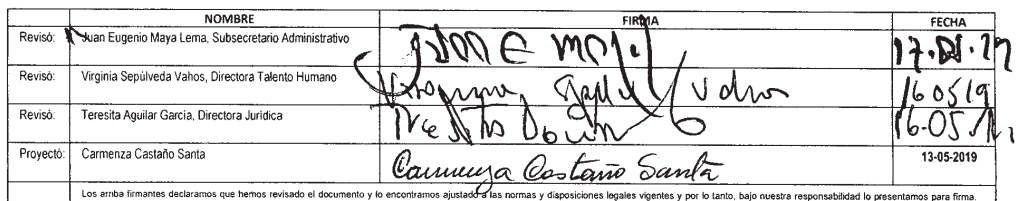 NOMBRE FIRMA FECHA
Revisó: Juan Eugenio Maya Lema, Subsecretario Administrativo
Revisó: Virginia Sepúlveda Vahos, Directora Talento Humano 160519
Revisó: Teresita Aguilar García, Directora Jurídica
Proyectó: Carmenza Castaño Santa Carmenza Castaño Santa 13-05-2019
Los arriba firmantes declaramos que hemos revisado el documento y lo encontramos ajustado a las normas y disposiciones legales vigentes y por lo tanto, bajo nuestra responsabilidad lo presentamos para firma.